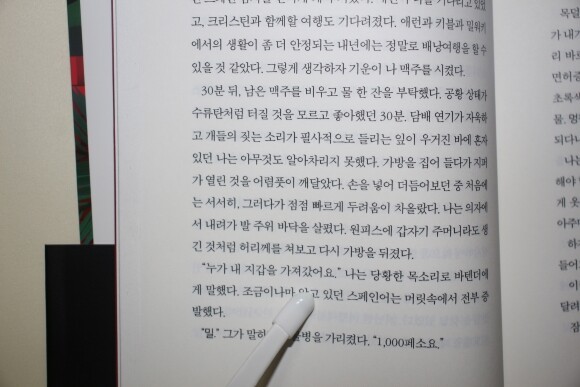 고, 크리스틴과 함께할 여행도 기다려졌다. 애런과 키블과 밀워키
에서의 생활이 좀 더 안정되는 내년에는 정말로 배낭여행을 할 수
있을 것 같았다. 그렇게 생각하자 기운이 나 맥주를 시켰다.
30분 뒤, 남은 맥주를 비우고 물 한 잔을 부탁했다. 공황 상태가
수류탄처럼 터질 것을 모르고 좋아했던 30분. 담배 연기가 자욱하
고 개들의 짖는 소리가 필사적으로 들리는 잎이 우거진 바에 혼자
있던 나는 아무것도 알아차리지 못했다. 가방을 집어 들다가 지퍼
가 열린 것을 어렴풋이 깨달았다. 손을 넣어 더듬어보던 중 처음에
는 서서히, 그러다가 점점 빠르게 두려움이 차올랐다. 나는 의자에
서 내려가 발 주위 바닥을 살폈다. 원피스에 갑자기 주머니라도 생
긴 것처럼 허리께를 쳐보고 다시 가방을 뒤졌다.
"누가 내 지갑을 가져갔어요." 나는 당황한 목소리로 바텐더에
게 말했다. 조금이나마 알고 있던 스페인어는 머릿속에서 전부 증
발했다.
"밀." 그가 말하 가리켰다. "1,000페소요."
목덜
가 내
리 바로
면허증
초록색
물. 명
되다니
나는
해야
게 옷
아주
하
들어
이
달러
잠